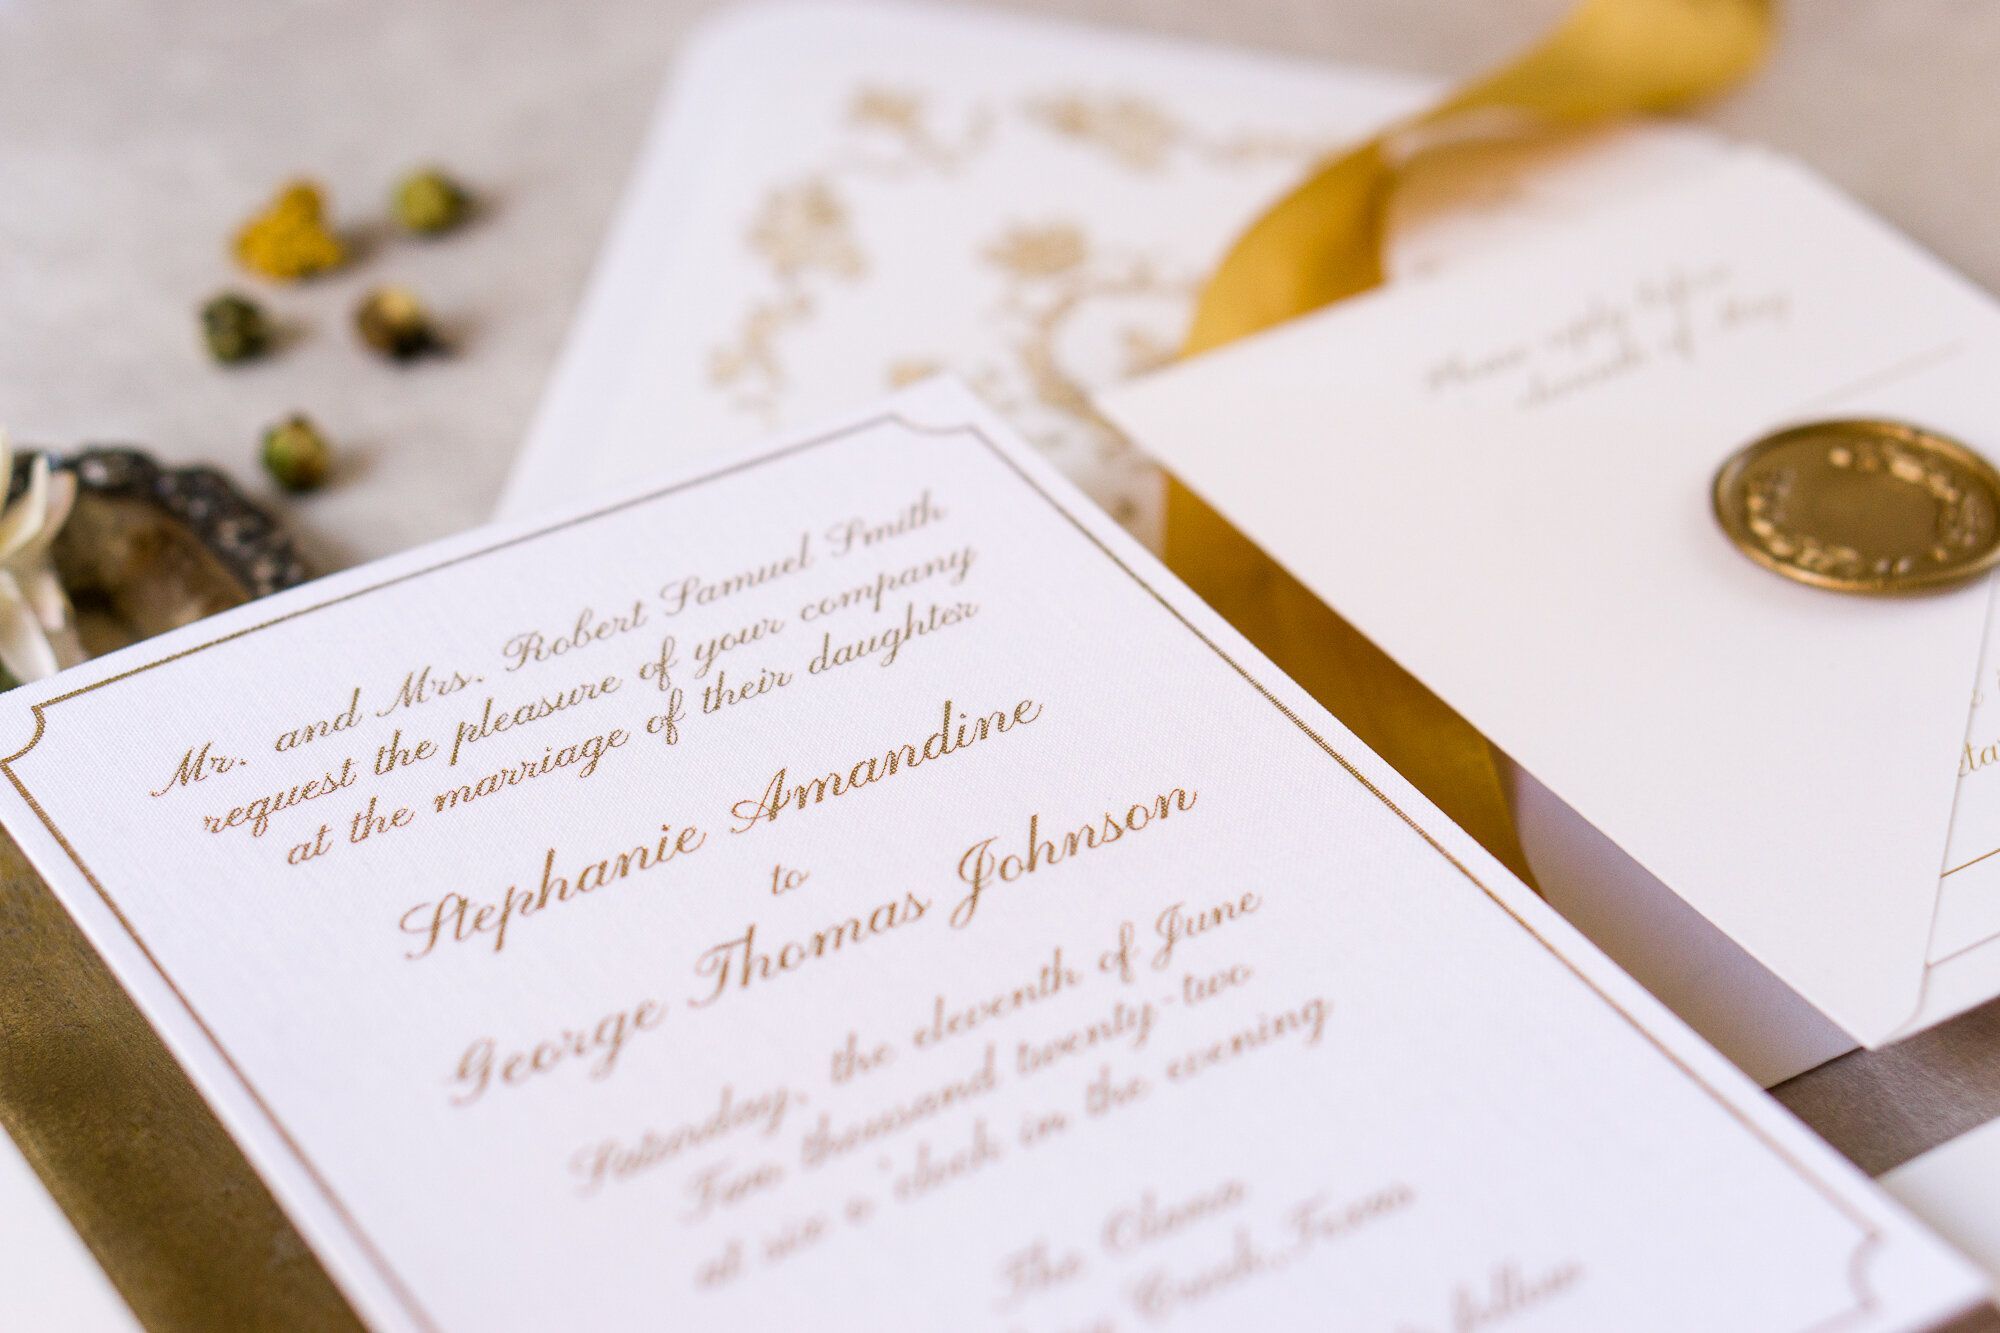 Mr. and Mrs. Robert Samuel Smith
request the pleasure of your company
at the marriage of their daughter
Stephanie Amandine
to
George Thomas Johnson
Saturday, the eleventh of June
Two thousand twenty-two
at six o'clock in the evening
The Olana
Creek, Texas
follow
Please reply before
of May